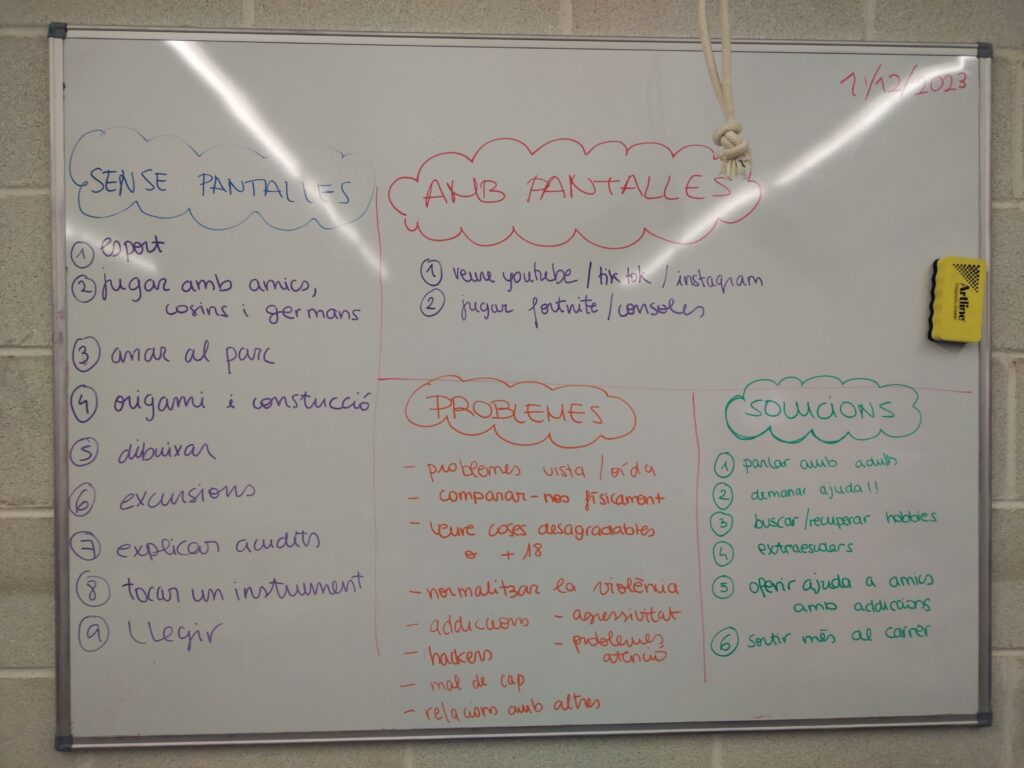 1'/12/2023
SENSE PANTALLES
1 esport
2 jugar amb amics,
cosins i germans
3 anar al parc
4 origami i constucció
5 dibuixar
6 excursions
7 explicar acudits
8 tocar un instrument
9 llegir
AMB PANTALLES
1 veure youtube / tik tok / instagram
2 jugar fortnite / consoles
PROBLEMES
- problemes vista / oïda
- comparar-nos físicament
- veure coses desagradables
o +18
- normalitzar la violència
- addiccions
- agressivitat
- hackers
- problemes
atenció
- mal de cap
- relacions amb altres
SOLUCIONS
1 parlar amb adults
2 demanar ajuda!!
3 buscar/recuperar hobbies
4 extraescolars
5 oferir ajuda a amics
amb addiccions
6 sortir més al carrer
Artline